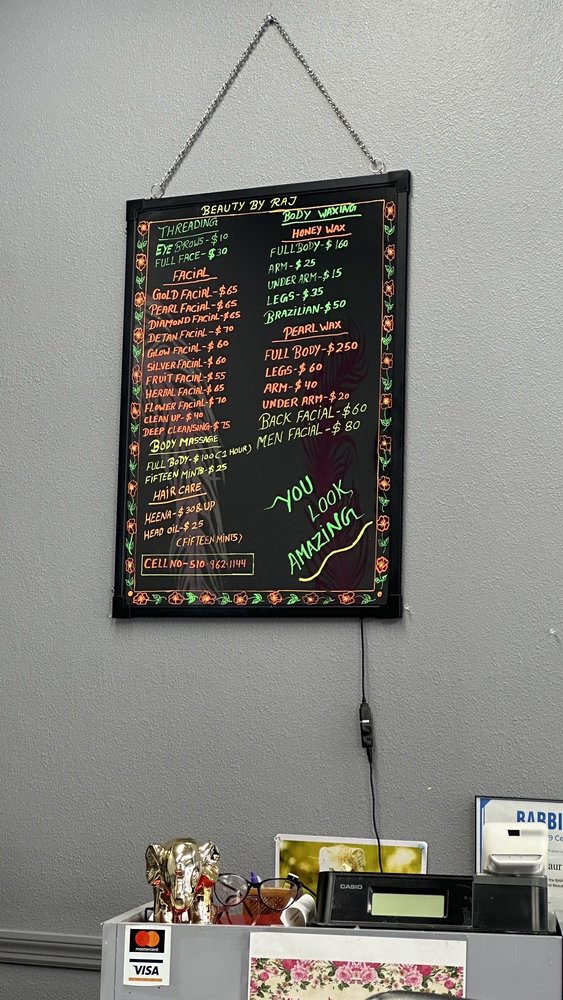 BEAUTY BY RAJ
THREADING
EYE BROWS-$10
FULL FACE-$30
FACIAL
GOLD FACIAL-$65
PEARL FACIAL-$65
DIAMOND FACIAL-$65
DETAN FACIAL-$70
GLOW FACIAL-$60
SILVER FACIAL-$60
FRUIT FACIAL-$55
HERBAL FACIAL-$65
FLOWER FACIAL-$70
CLEAN UP-$40
DEEP CLEANSING-$75
BODY MASSAGE
FULL BODY-$100(1 HOUR)
FIFTEEN MINTS-$25
HAIR CARE
HEENA-$30&UP
HEAD OIL-$25
(FIFTEEN MINTS)
CELL NO-510-962-1144
BODY WAXING
HONEY WAX
FULL BODY-$160
ARM-$25
UNDER ARM-$15
LEGS-$35
BRAZILIAN-$50
PEARL WAX
FULL BODY-$250
LEGS-$60
ARM-$40
UNDER ARM-$20
BACK FACIAL-$60
MEN FACIAL-$80
YOU
LOOK
AMAZING
CASIO
mastercard
VISA